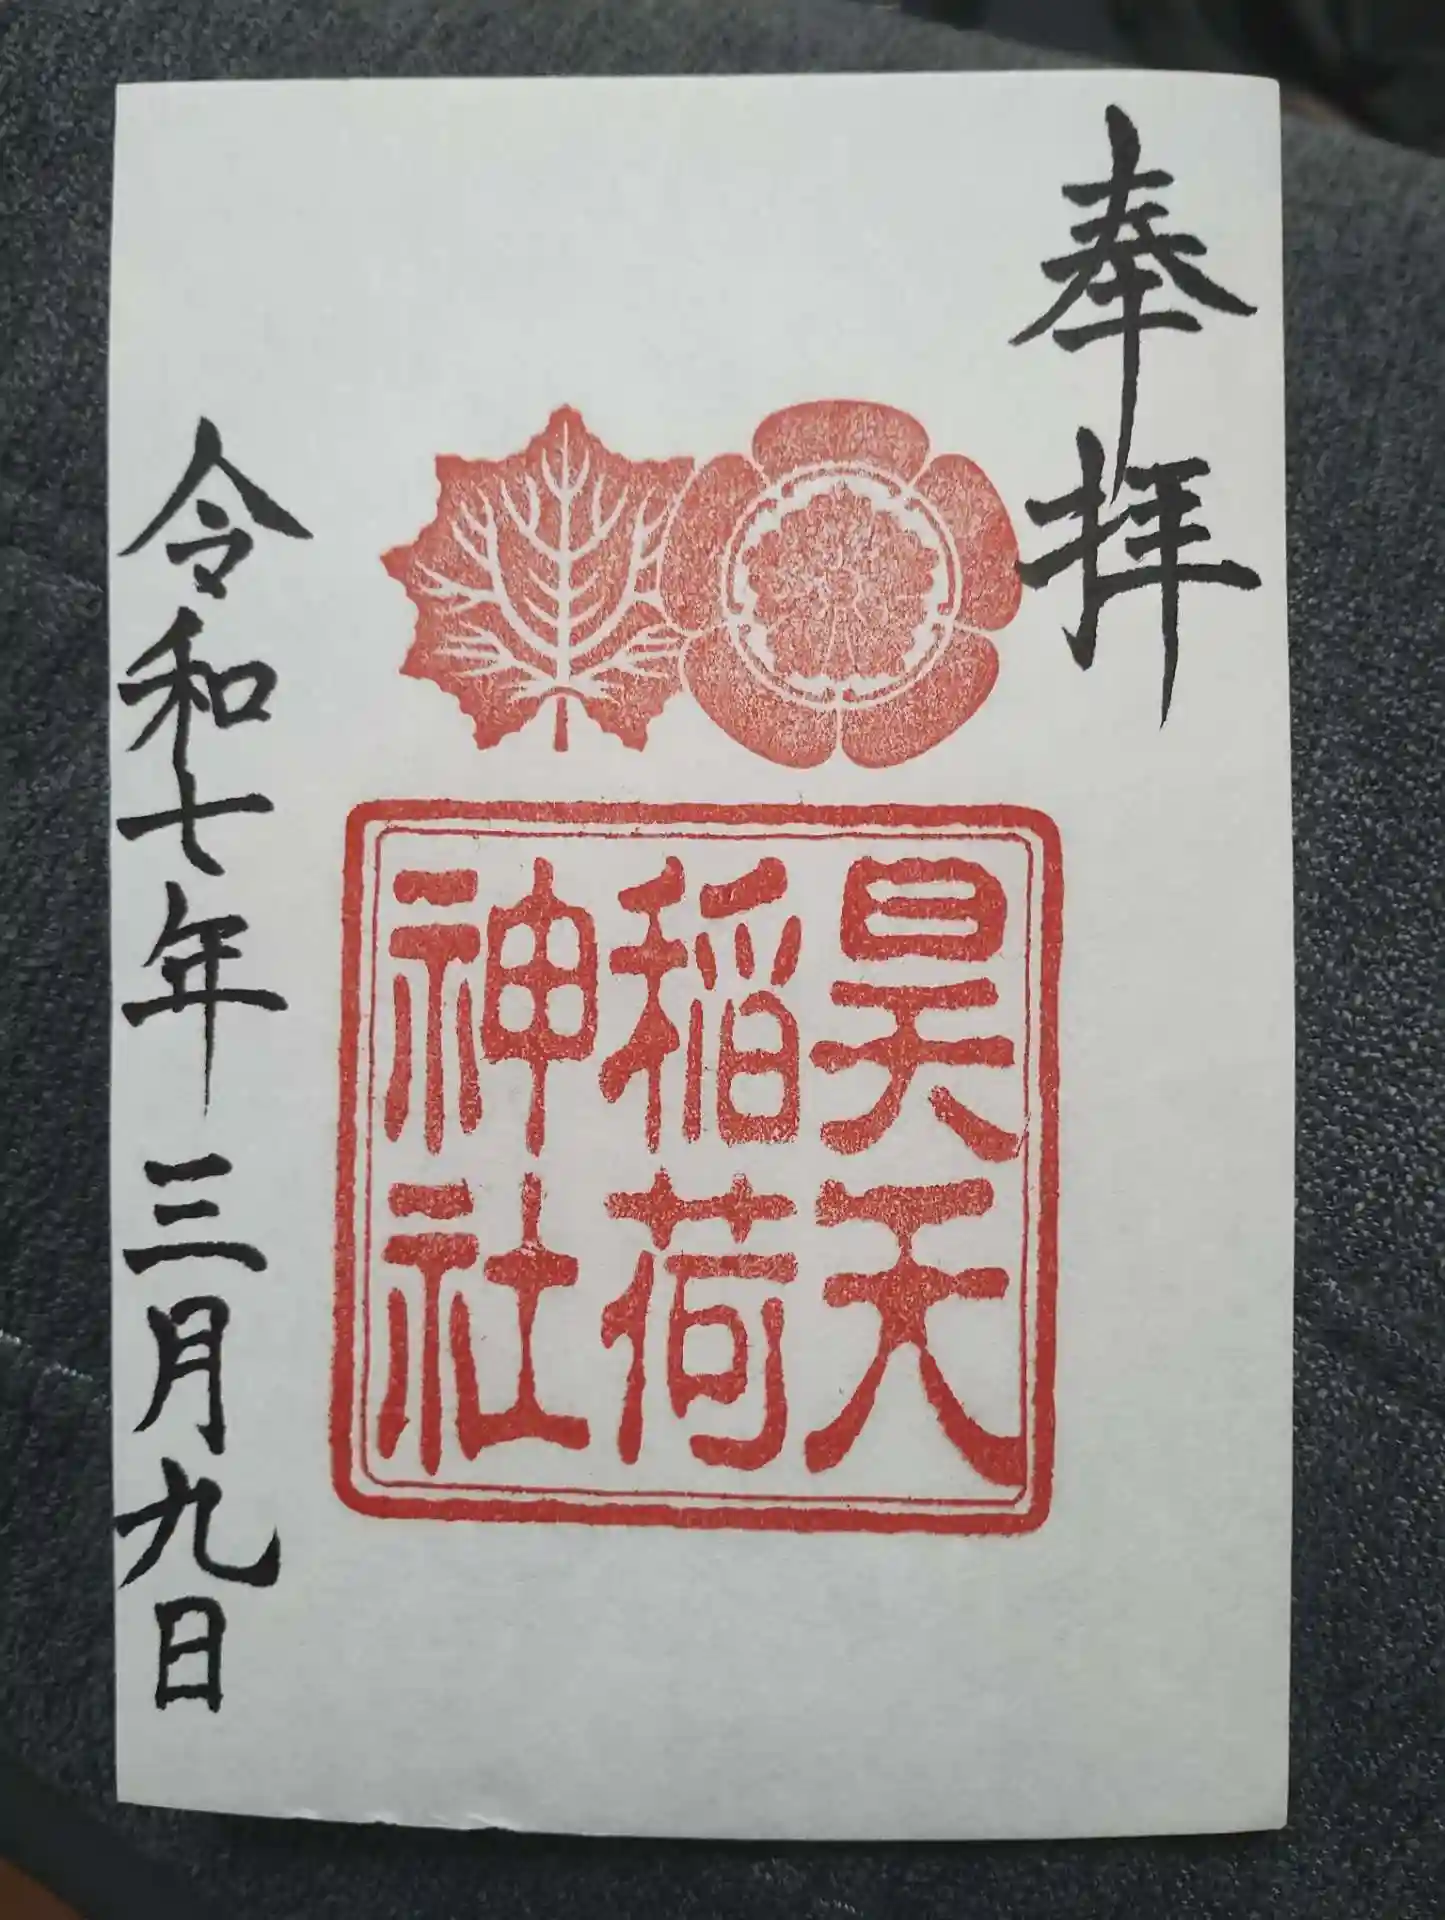 奉拝
昊天
稲荷
神社
令和七年三月九日